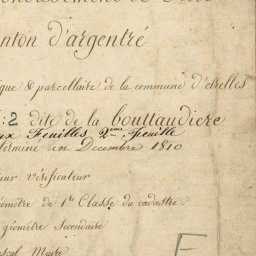 nton d'argentré
ique & parcellaire de la commune d'etrelles
: 2 dite de la bouttaudiere
ux Feuilles, 2.me Feuille
terminé en Decembre 1810
eur vérificateur
omètre de 1re Classe du cadastre
géomètre Secondaire
Maire
E